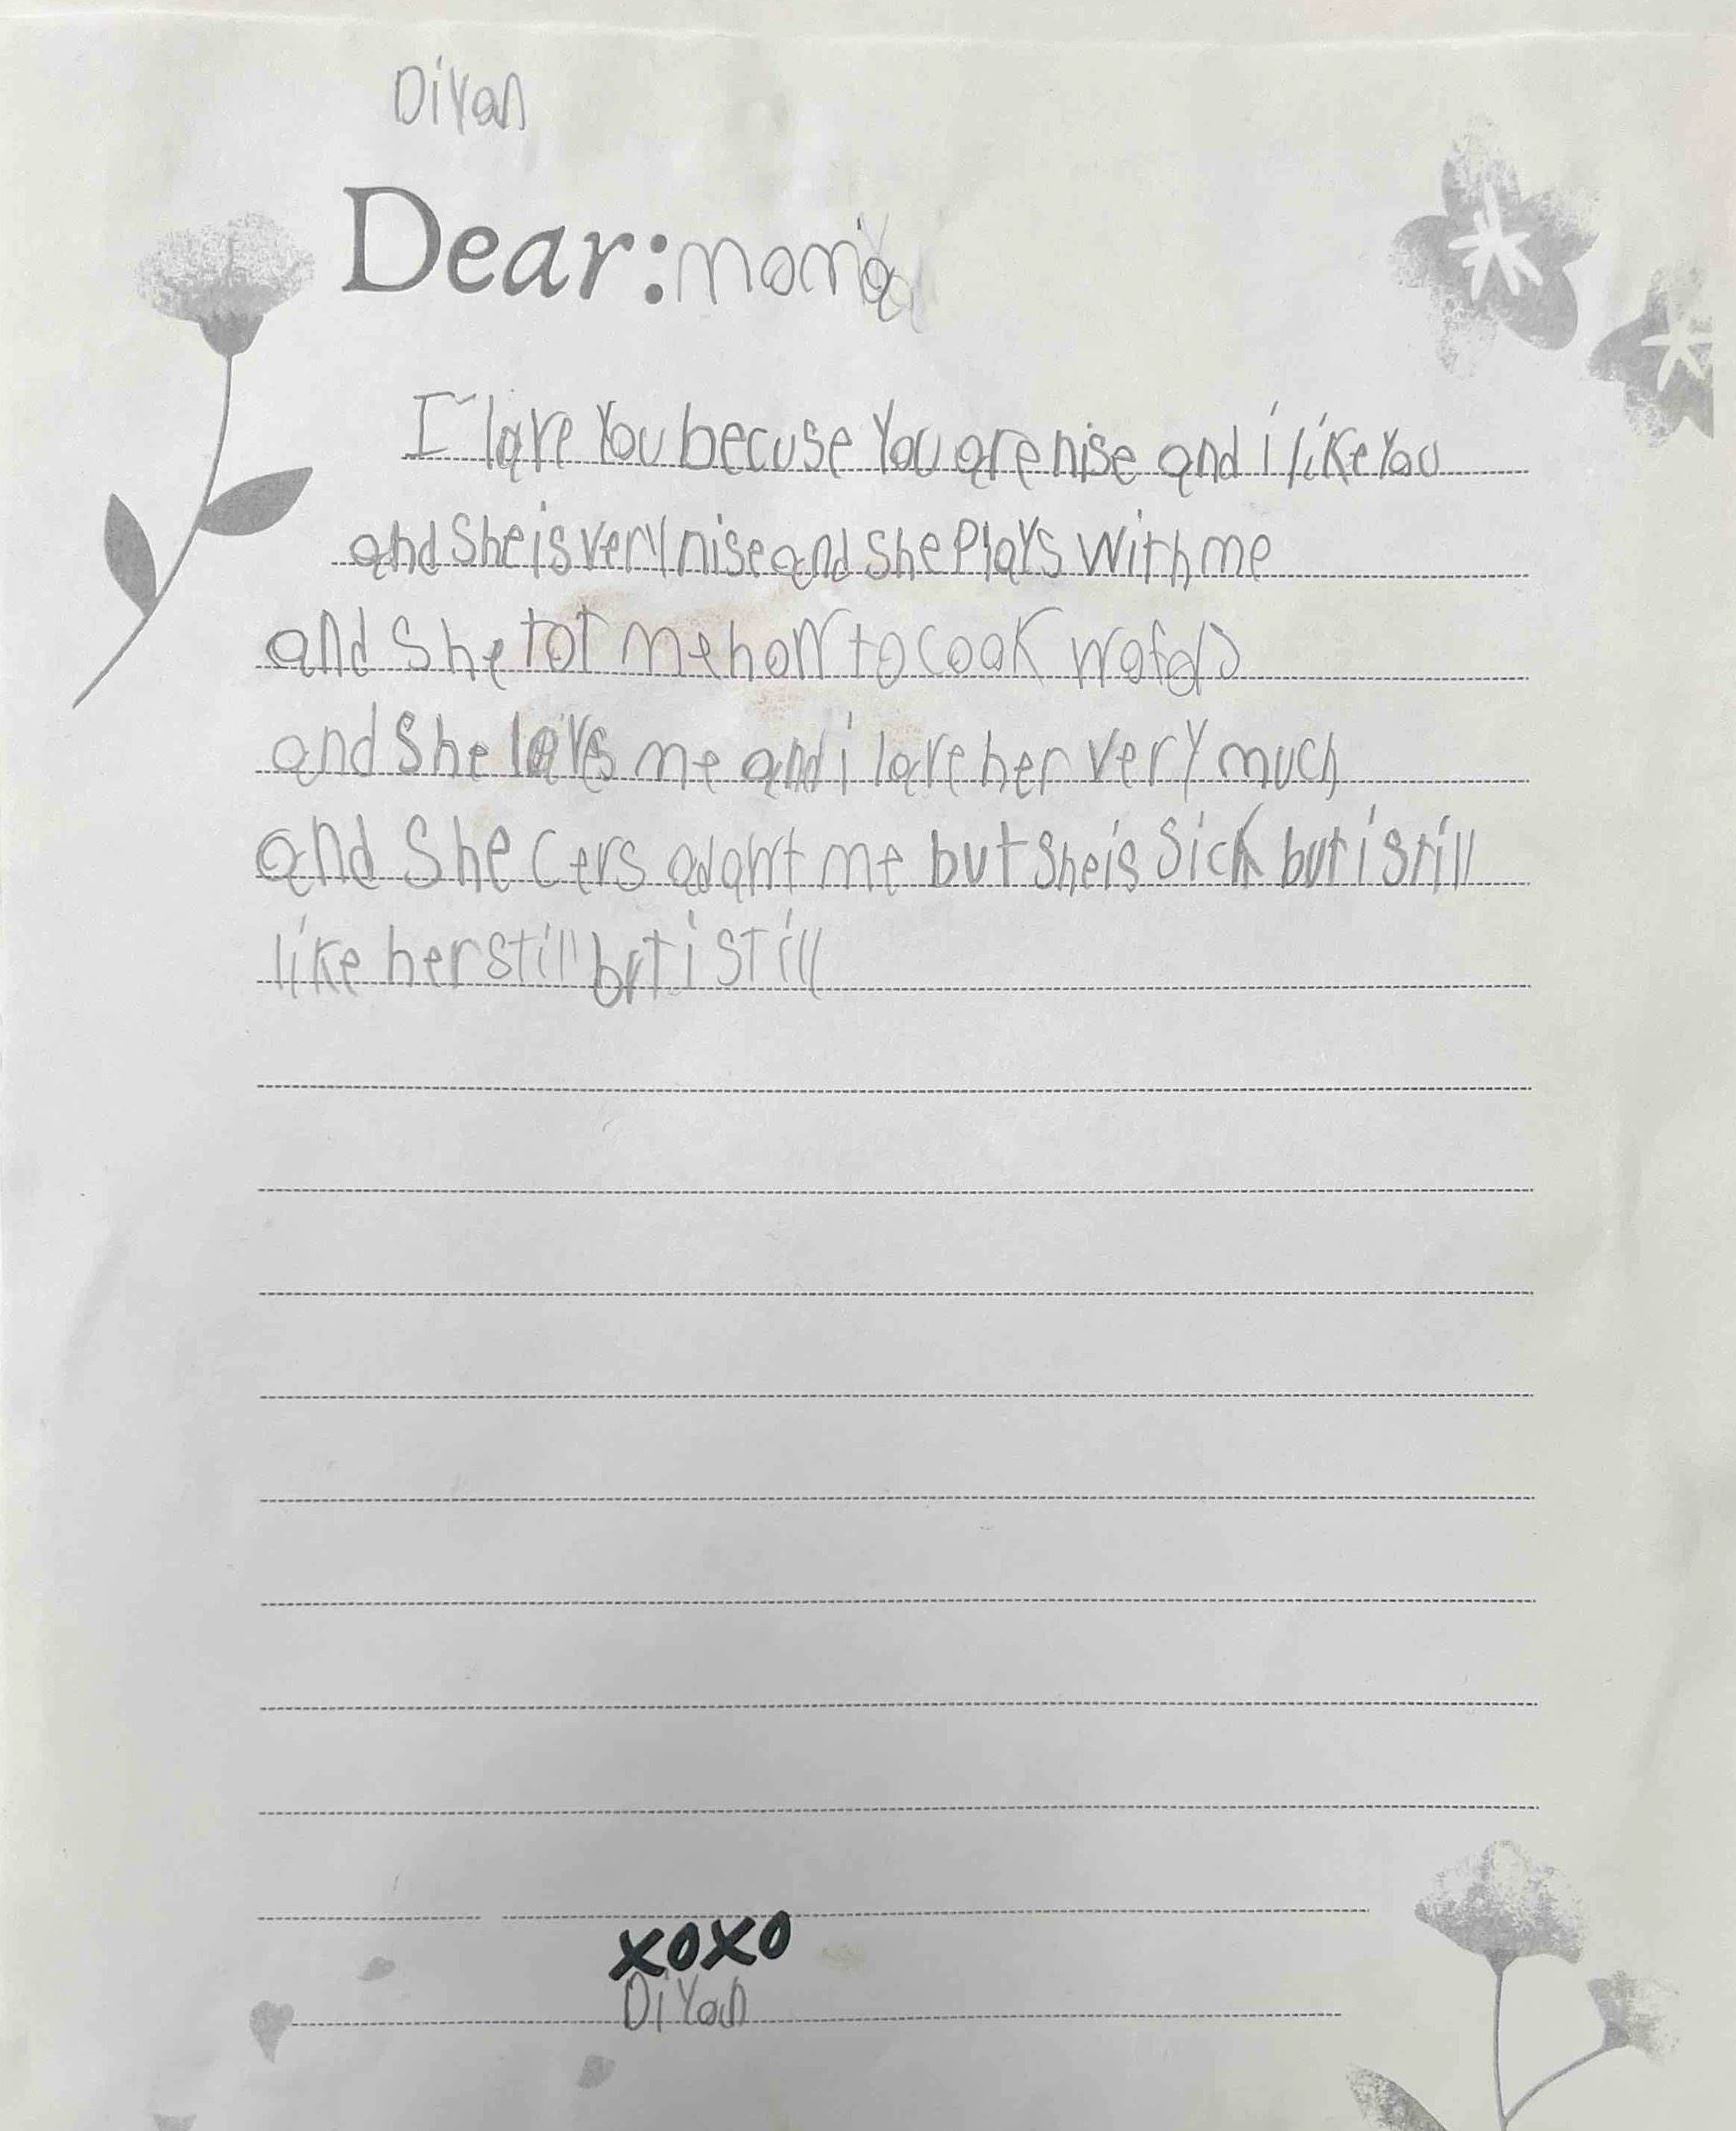 Diyan
Dear: moma
I love You becuse You are nise and i like You
and She is very nise and She Plays with me
and She tot me how to cook wafols
and She loves me and i love her very much
and She cers adawt me but She is Sick but i still
like her still but i still
xoxo
Diyan